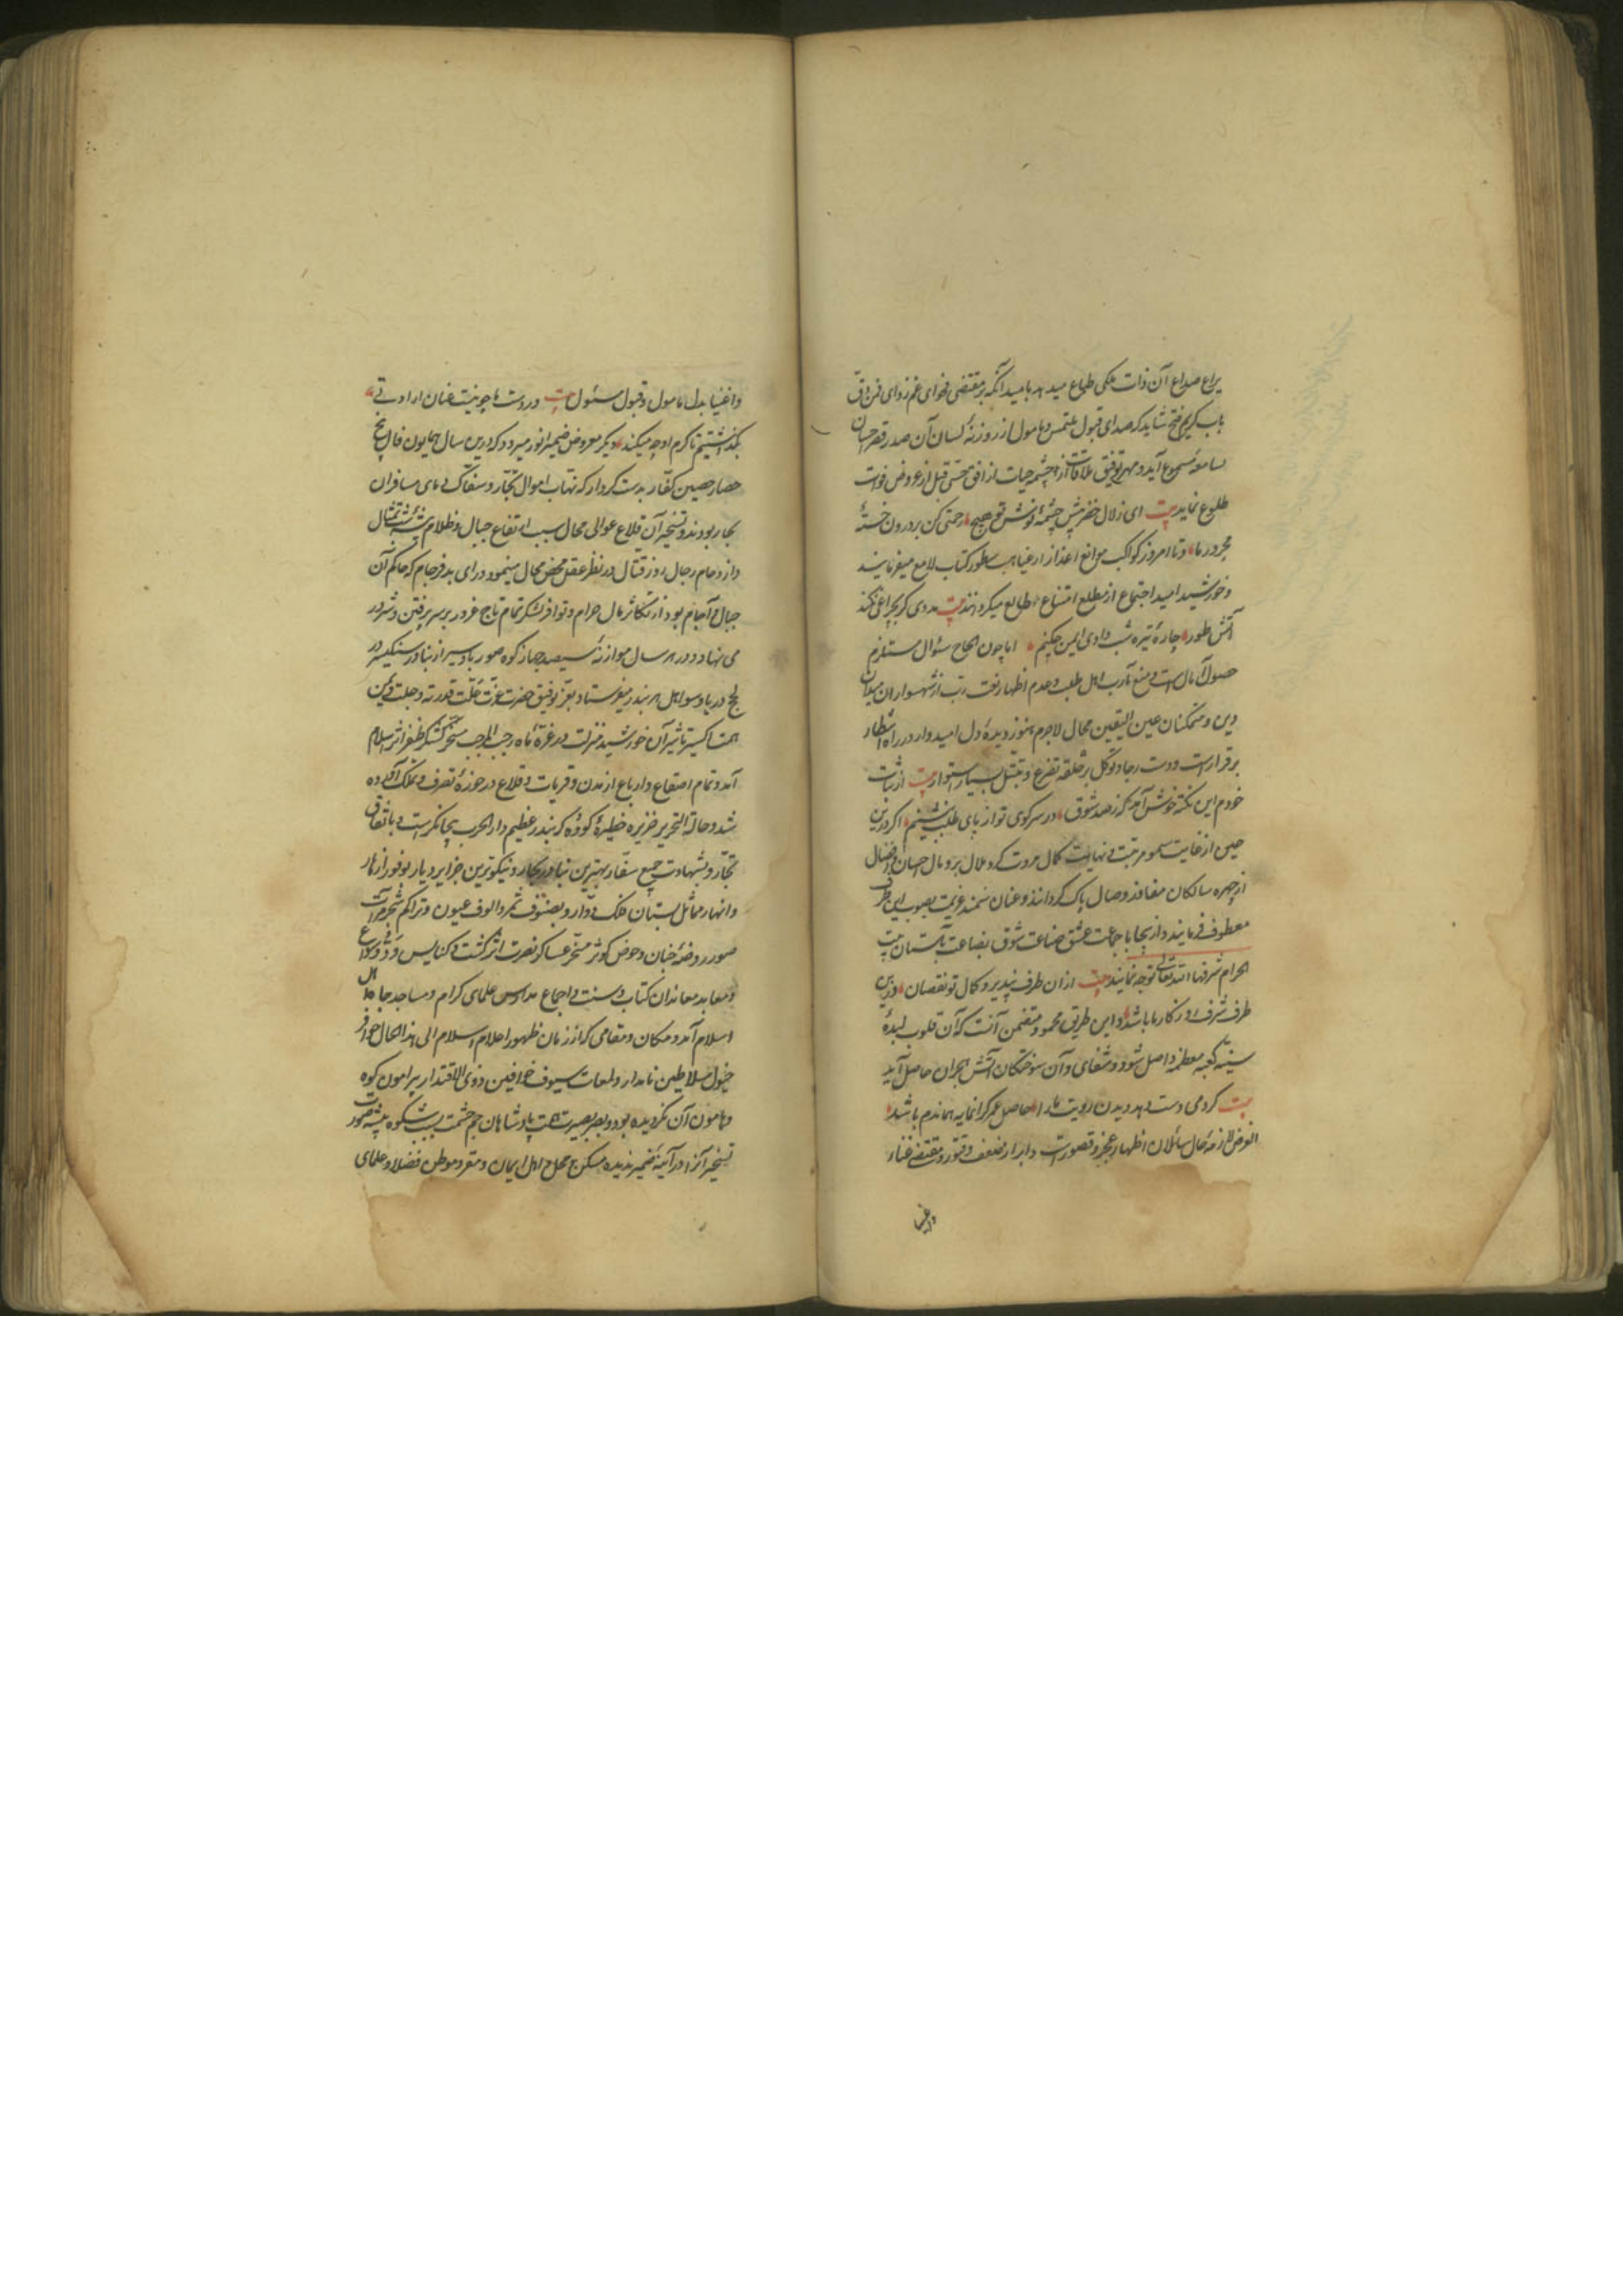 یراع صداع آن ذات ملکی طباع میدهد بامید آنکه بر مقتضی فحوای غم زدای من دق
باب کریم فتح شاید که صدای قبول ملتمس و مامول از روزنهٔ لسان آن صدر قصر احسان
بسامعه مسموع آید و مهر توفیق ملاقات از افق حیات قبل از عروض فوات
طلوع نماید بیت ای زلال خضر پیش چشمهٔ نوشت هیچ رحمتی کن بر درون خستهٔ
مجرور ما و تا امروز کواکب موانع اعذار از غیاهب سطور کتاب لامع میفرمایند
و خورشید امید اجتماع از مطلع امتناع طالع میگردانند بیت مددی گر بچراغی نکند
آتش طور چارهٔ تیره شب وادی ایمن چکنم اما چون الحاح سئوال مستلزم
حصول آمال است و منع مآرب اهل طلب و عدم اظهار نعت رتب از شهسواران میدان
دین و متمکنان عین الیقین محال لاجرم هنوز دیدهٔ دل امیدوار در راه انتظار
برقرار است و دست رجا و توکل بر حلقه تضرع و تبتل بسیار استوار بیت از ثبات
خودم این نکته خوش آمد که ز صد شوق در سر کوی تو از پای طلب ننشینم اگر درین
حین از غایت سمو مرتبت و نهایت کمال مروت گرد ملال برومال احسان و افضال
از چهره سالکان مفاوز وصال پاک گردانند و عنان سمند عزیمت بصوب این طرف
معطوف فرمایند و از اینجا با جماعت عشق صناعت شوق بضاعت بآستان بیت
الحرام شرفها الله تعالی توجه نمایند بیت از ان طرف نپذیرد کمال تو نقصان وزین
طرف شرف روزگار ما باشد و این طریق محمود متضمن آنست که آن قلوب لبدهٔ
سینه کعبه معظمه واصل شود و شفای و آن سوختگان آتش هجران حاصل آید
بیت گر دمی دست دهد دیدن رویت ما را حاصل عمر گرانمایه هماندم باشد
الغرض لازمهٔ حال سائلان اظهار عجز و قصور است و ابراز ضعف و فتور و مقتضی غناء
واغنیا
واغنیا بذل مامول و قبول مسئول بیت در دست ما چو نیست عنان ارادتی
بگذاشتیم تا کرم او چه میکند دیگر معروض ضمیر انور میرود که درین سال همایون فال پنج
حصار حصین کفار بدست کردار که نهاب اموال تجار و سفاک دمای مسافران
بحار بودند و تسخیر آن قلاع عوالی محال بسبب ارتفاع جبال و ظلام بیشه
و ازدحام رجال روز قتال در نظر عقل محض محال مینمود و رای بدفرجام که حاکم آن
جبال و آجام بود از تکاثر مال حرام و توافر لشکر تمام تاج غرور بر سر پر فتن و شرور
می نهاد و در هر سال موازنه سیصد جهاز کوه صور باد سیر از بنادر سنگیسر در
لجج دریا و سواحل هر بندر میفرستاد بعز توفیق حضرت عزت علت قدرته و جلت و یمن
همت اکسیر تاثیر آن خورشید منزلت در غرهٔ ماه رجب المرجب مسخر لشکر ظفر اثر اسلام
آمد و تمام اصقاع و ارباع از مدن و قریات و قلاع در حوزهٔ تصرف و تملک آورده
شد و حالة التحریر جزیره خطیرهٔ کووه که بندر عظیم دار الحرب بیجانگر است و باتفاق
تجار و بشهادت جمیع سفار بهترین بنادر بحار و نیکوترین جزایر دیار بوفور ازهار
و انهار مماثل بستان فلک دوار و بصنوف ثمر و الوف عیون و تراکم شجر مرآت
صور روضه جنان و حوض کوثر مسخر عساکر نصرت اثر گشت و کنایس ود و سواع
و معابد معاندان کتاب و سنت و اجماع مدارس علمای کرام و مساجد جباه اهل
اسلام آمد و مکان و مقامی که از زمان ظهور اعلام اسلام الی هذا الحال حوافر
خیول سلاطین نامدار و لمعات سیوف خواقین ذوی الاقتدار پیرامون کوه
و هامون آن نگردیده بود و بصر بصیرت همت پادشاهان جم حشمت بسبب شکوه بیشه صورت
تسخیر آنرا در آیینهٔ ضمیر ندیده مسکن و محل اهل ایمان و مقر و موطن فضلا و علمای